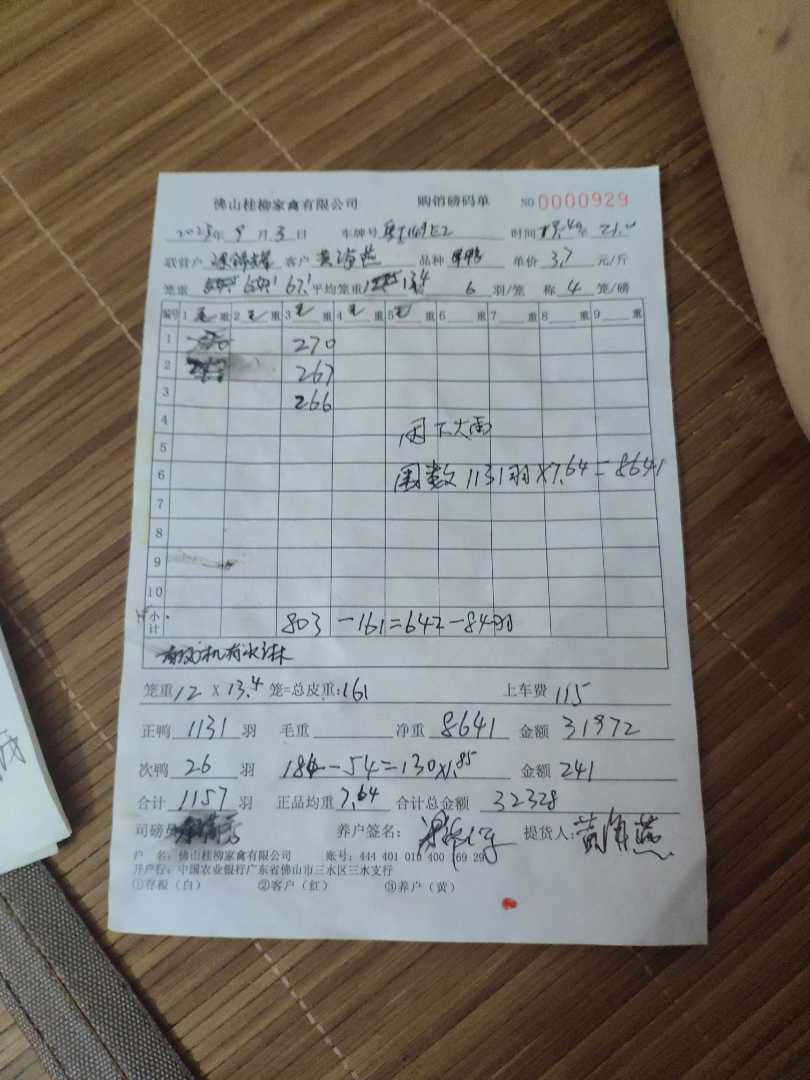 佛山桂柳家禽有限公司 购销磅码单 NO 0000929
2023年 9 月 3 日 车牌号 时间
联营户 客户 黄海燕 品种 单价 3.7 元/斤
笼重 67.1 平均笼重 13.4 6 羽/笼 称 4 笼/磅
编号 1 重 2 重 3 重 4 重 5 重 6 重 7 重 8 重 9 重
1 270
2 267
3 266
4 因下大雨
5
6 围数 1131羽×7.64=8641
7
8
9
10
小计 803 -161=642-84羽
笼重 12 X 13.4 笼=总皮重:161 上车费 115
正鸭 1131 羽 毛重 净重 8641 金额 31972
次鸭 26 羽 184-54=130×1.85 金额 241
合计 1157 羽 正品均重 7.64 合计总金额 32328
司磅员 养户签名: 提货人: 黄海燕
户 名: 佛山桂柳家禽有限公司 账号: 444 401 010 400 169 29
开户行: 中国农业银行广东省佛山市三水区三水支行
①存根(白) ②客户(红) ③养户(黄)